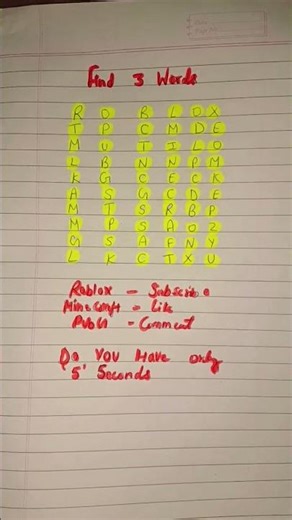 Find 3 Words
R O B L O X
T P C M D E
M U T I L O
L B N N P M
K G C E C K
A S G C D E
M T S R B P
M P S A O Z
G S A F N Y
L K C T X U
Roblox - Subscribe
Minecraft - Like
PUBG - Comment
Do You Have only
5' Seconds